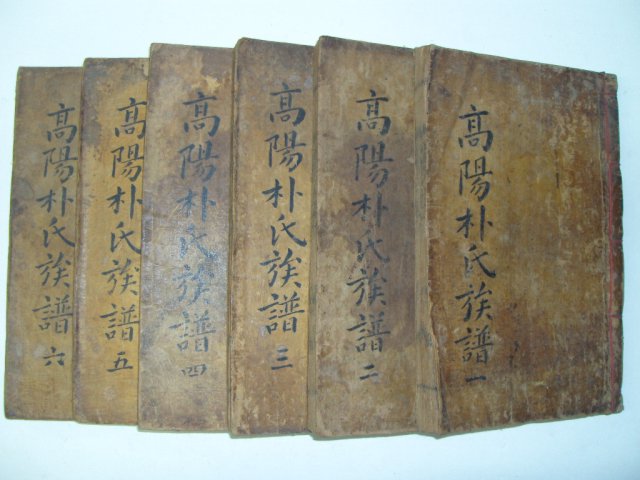 髙陽朴氏族譜 一
髙陽朴氏族譜 二
髙陽朴氏族譜 三
髙陽朴氏族譜 四
髙陽朴氏族譜 五
髙陽朴氏族譜 六